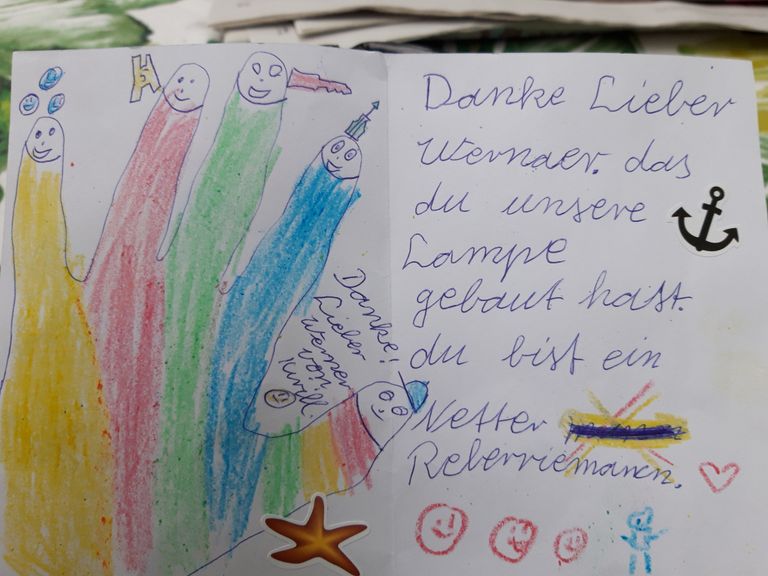 Danke!
Lieber
Werner
von:
Danke Lieber
Wernaer. das
du unsere
Lampe
gebaut hast.
du bist ein
Netter
Reberriemann.